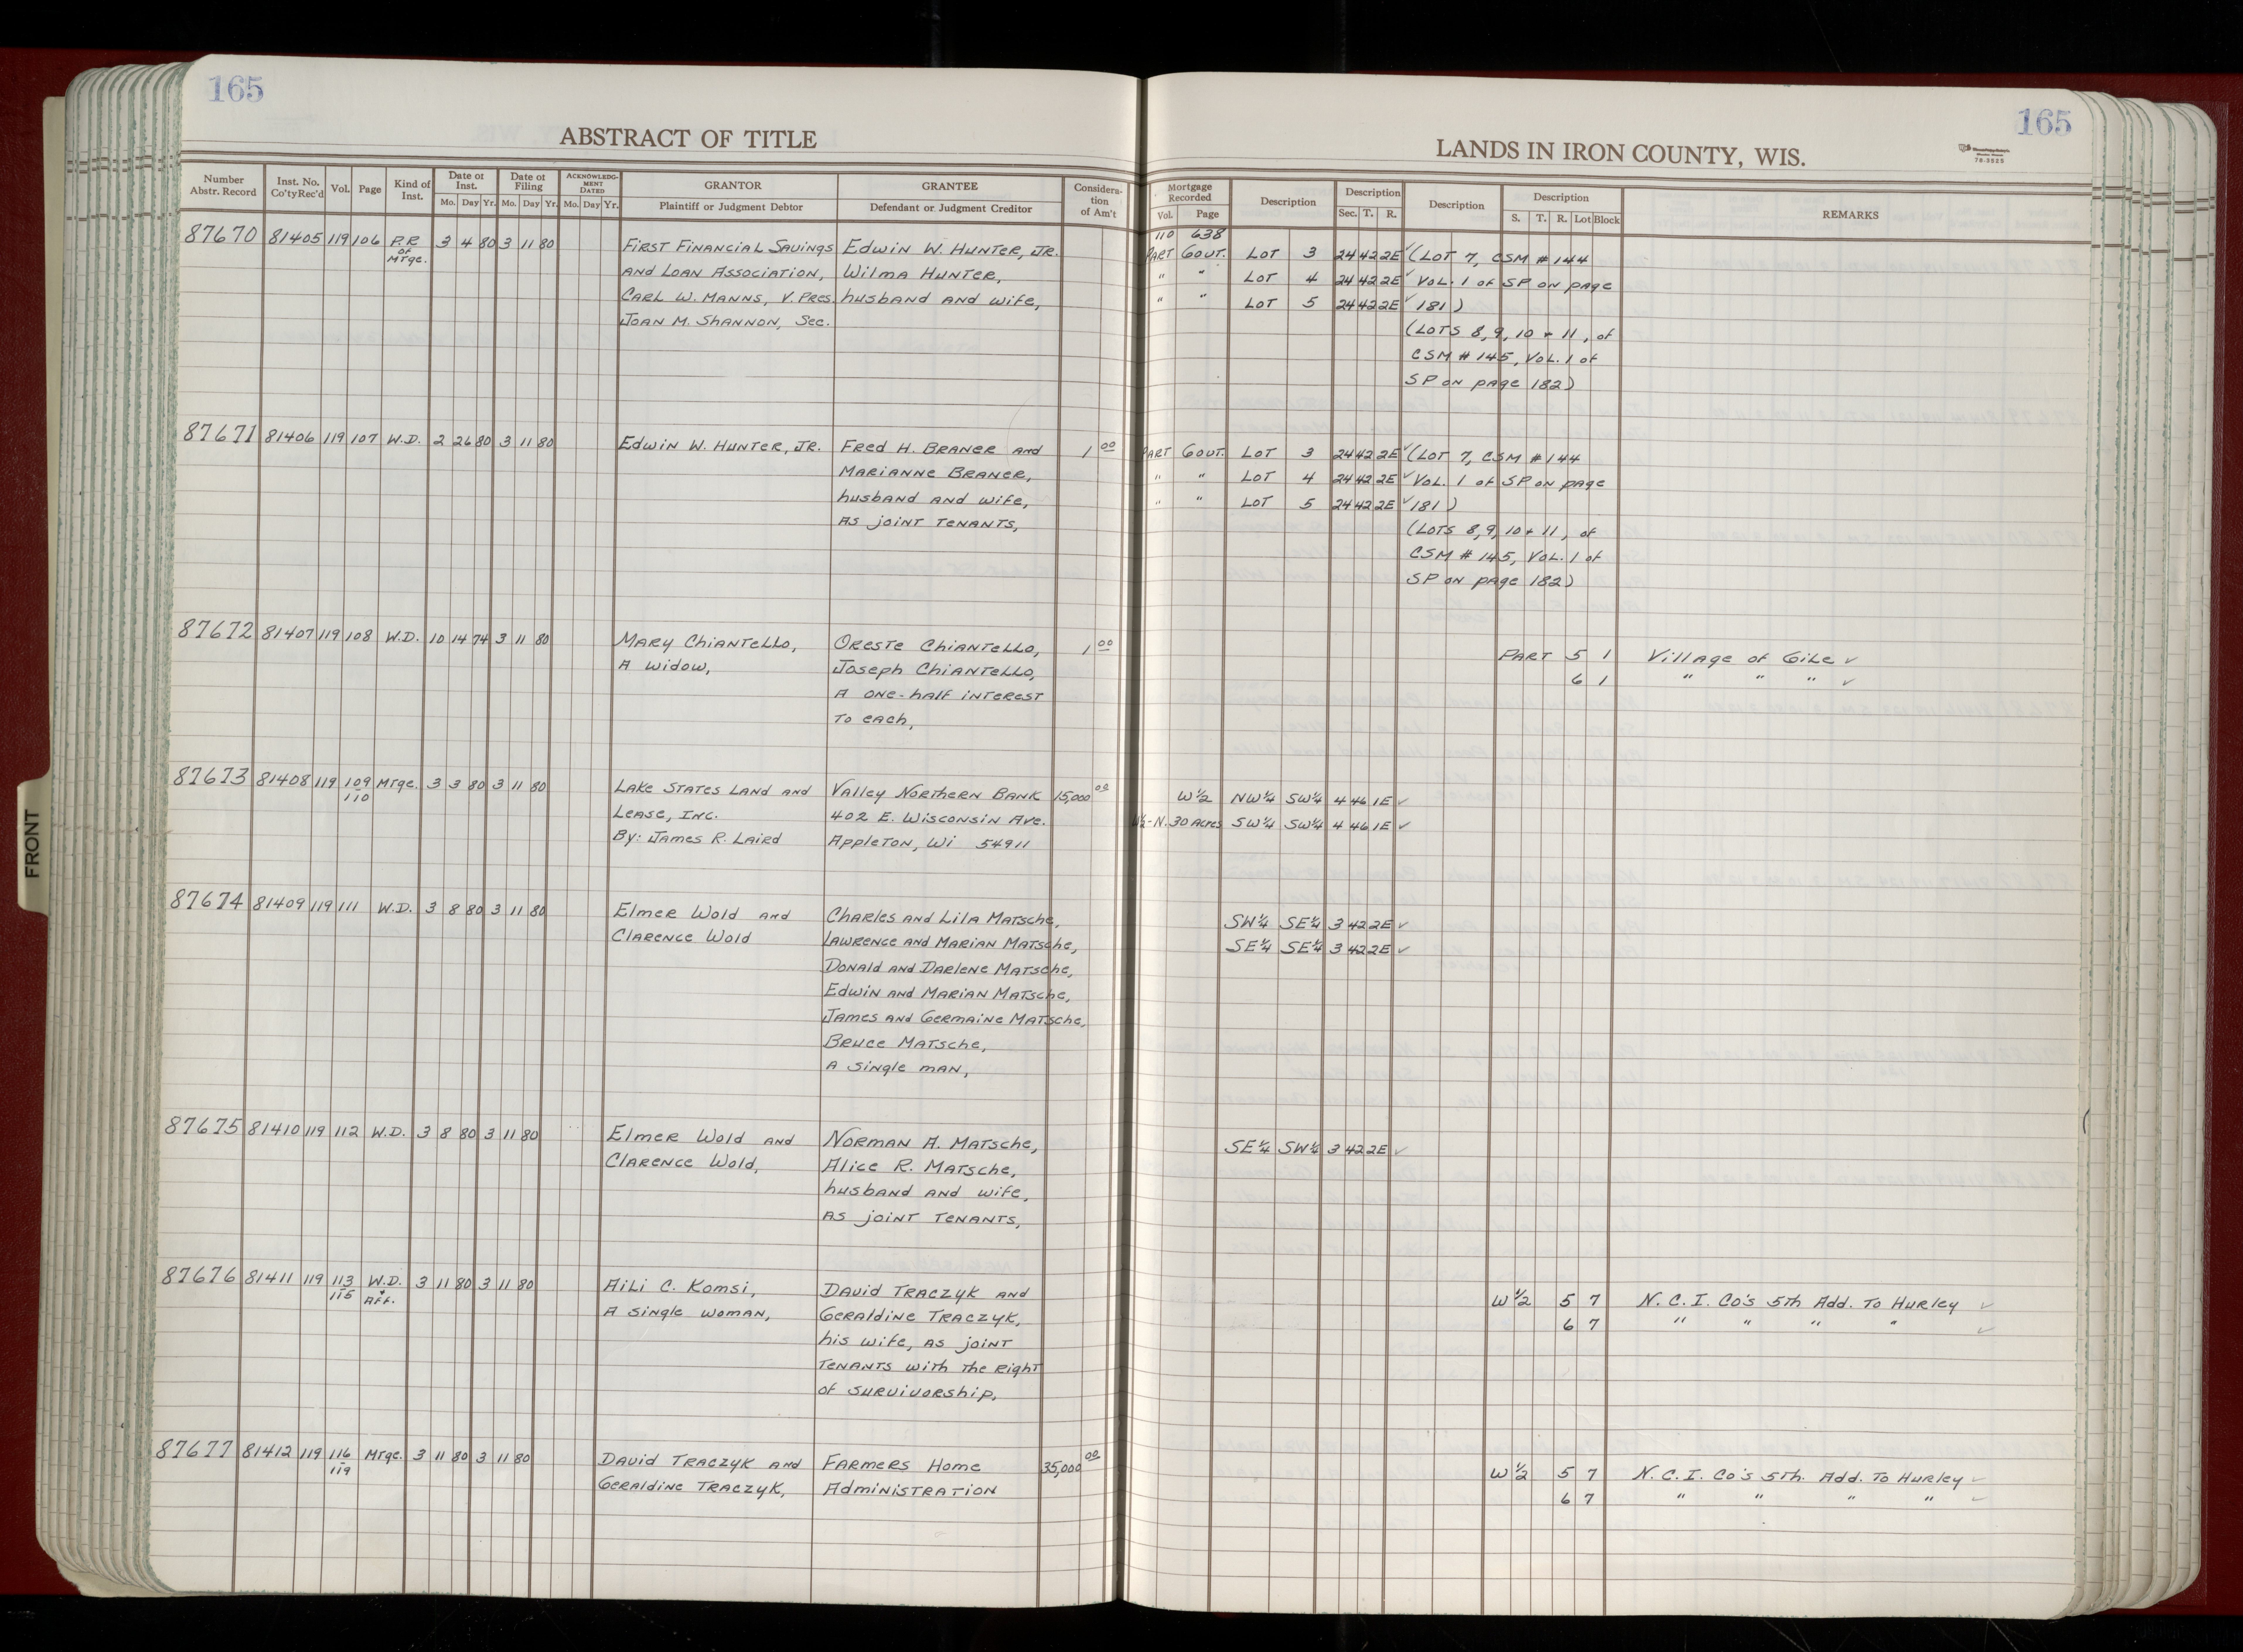 165
165
ABSTRACT OF TITLE
LANDS IN IRON COUNTY, WIS.
78-3525
Number Abstr. Record
Inst. No. Co'ty Rec'd
Vol.
Page
Kind of Inst.
Date of Inst.
Mo. Day Yr.
Date of Filing
Mo. Day Yr.
ACKNOWLEDG-MENT DATED
Mo. Day Yr.
GRANTOR
Plaintiff or Judgment Debtor
GRANTEE
Defendant or Judgment Creditor
Considera-tion of Am't
Mortgage Recorded
Vol. Page
Description
Description
Sec. T. R.
Description
Description
S. T. R. Lot Block
REMARKS
87670 81405 119 106 P.R. of Mtge. 3 4 80 3 11 80 First Financial Savings Edwin W. Hunter, Jr. 110 638
and Loan Association, Wilma Hunter, Part Gout. Lot 3 24 42 2E ✓ (Lot 7, CSM # 144
Carl W. Manns, V. Pres. husband and wife, " " Lot 4 24 42 2E ✓ Vol. 1 of SP on page
Joan M. Shannon, Sec. " " Lot 5 24 42 2E ✓ 181)
(Lots 8, 9, 10 + 11, of
CSM # 145, Vol. 1 of
SP on page 182)
87671 81406 119 107 W.D. 2 26 80 3 11 80 Edwin W. Hunter, Jr. Fred H. Braner and 1 00 Part Gout. Lot 3 24 42 2E ✓ (Lot 7, CSM # 144
Marianne Braner, " " Lot 4 24 42 2E ✓ Vol. 1 of SP on page
husband and wife, " " Lot 5 24 42 2E ✓ 181)
as joint tenants, (Lots 8, 9, 10 + 11, of
CSM # 145, Vol. 1 of
SP on page 182)
87672 81407 119 108 W.D. 10 14 74 3 11 80 Mary Chiantello, Oreste Chiantello, 1 00 Part 5 1 Village of Gile ✓
a widow, Joseph Chiantello, 6 1 " " " ✓
a one-half interest
to each,
87673 81408 119 109 - 110 Mtge. 3 3 80 3 11 80 Lake States Land and Valley Northern Bank 15,000 00 W 1/2 NW 1/4 SW 1/4 4 46 1E ✓
Lease, Inc. 402 E. Wisconsin Ave. W 1/2 - N. 30 Acres SW 1/4 SW 1/4 4 46 1E ✓
By: James R. Laird Appleton, Wi 54911
87674 81409 119 111 W.D. 3 8 80 3 11 80 Elmer Wold and Charles and Lila Matsche, SW 1/4 SE 1/4 3 42 2E ✓
Clarence Wold Lawrence and Marian Matsche, SE 1/4 SE 1/4 3 42 2E ✓
Donald and Darlene Matsche,
Edwin and Marian Matsche,
James and Germaine Matsche,
Bruce Matsche,
a single man,
87675 81410 119 112 W.D. 3 8 80 3 11 80 Elmer Wold and Norman A. Matsche, SE 1/4 SW 1/4 3 42 2E ✓
Clarence Wold, Alice R. Matsche,
husband and wife,
as joint tenants,
87676 81411 119 113 - 115 W.D. + Aff. 3 11 80 3 11 80 Aili C. Komsi, David Traczyk and W 1/2 5 7 N. C. I. Co's 5th Add. To Hurley ✓
a single woman, Geraldine Traczyk, 6 7 " " " " ✓
his wife, as joint
tenants with the right
of survivorship,
87677 81412 119 116 - 119 Mtge. 3 11 80 3 11 80 David Traczyk and Farmers Home 35,000 00 W 1/2 5 7 N. C. I. Co's 5th. Add. To Hurley ✓
Geraldine Traczyk, Administration 6 7 " " " " ✓
FRONT